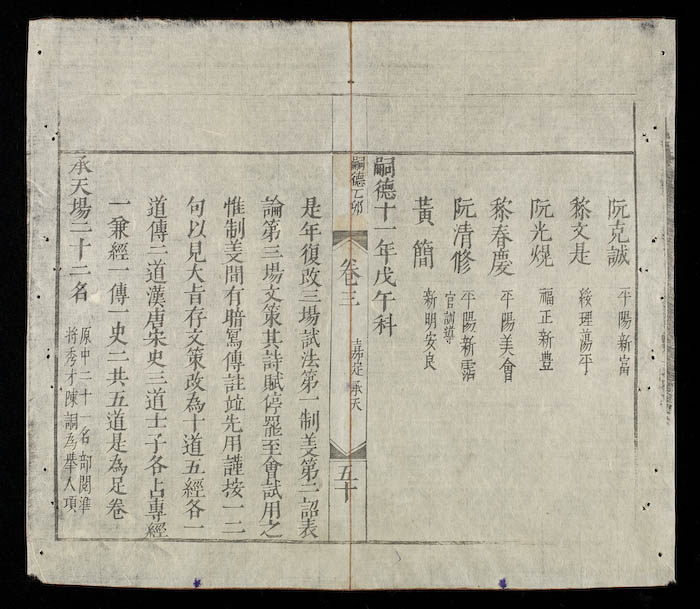 阮克誠 平陽新富
黎文是 綏理蕩平
阮光焜 福正新豐
黎春慶 平陽美會
阮清修 平陽新霑 官訓導
黃簡 新明安良
嗣德十一年戊午科
嗣德乙卯 卷三 嘉定 承天 五十
是年復改三場試法第一制義第二詔表
論第三場文策其詩賦停罷至會試用之
惟制義間有暗寫傳註竝先用謹按一二
句以見大旨存文策改為十道五經各一
道傳二道漢唐宋史三道士子各占專經
一兼經一傳一史二共五道是為足卷
承天場二十二名 原中二十一名部閱準
將秀才陳詷為舉人項